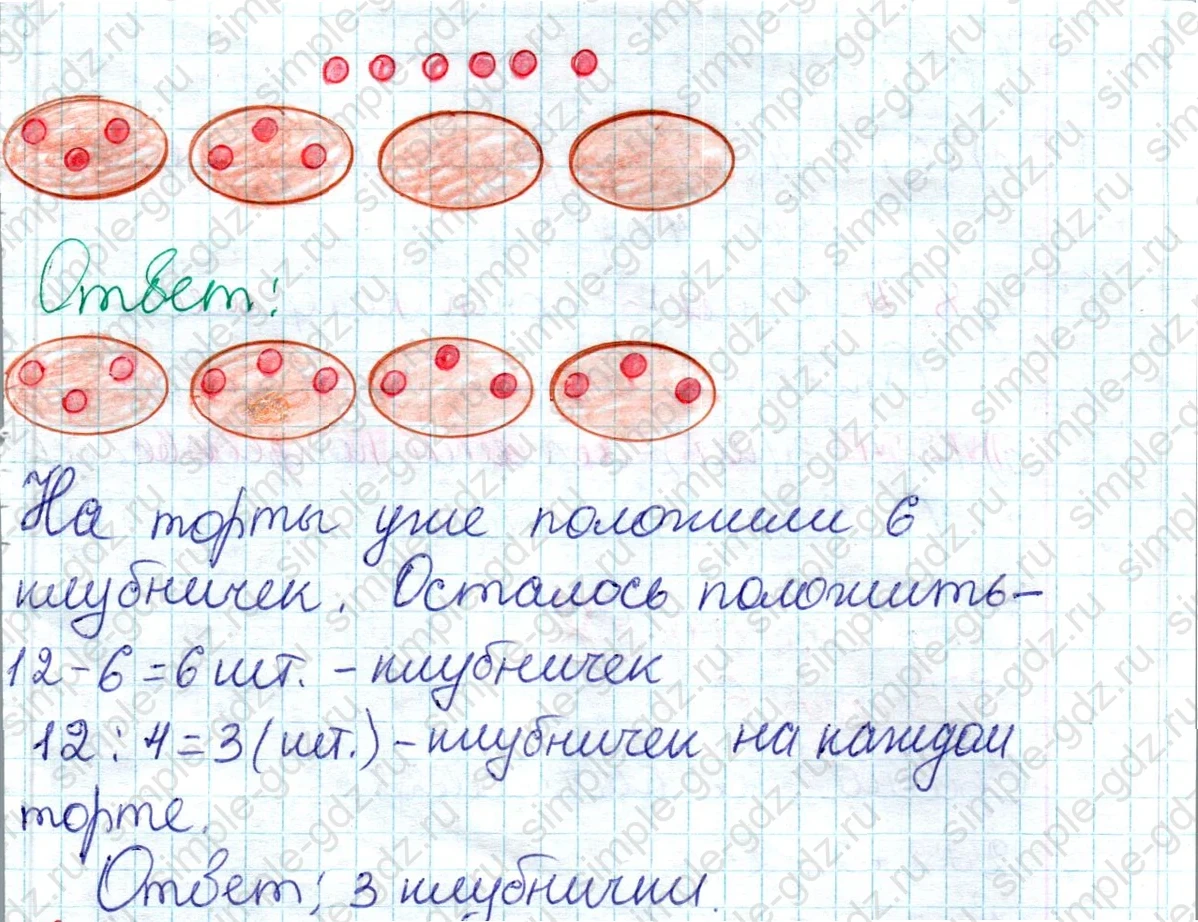 Ответ:
На торты уже положили 6
клубничек. Осталось положить-
12-6=6 шт. - клубничек
12:4=3 (шт.) - клубничек на каждом
торте.
Ответ: 3 клубнички.
simple-gdz.ru